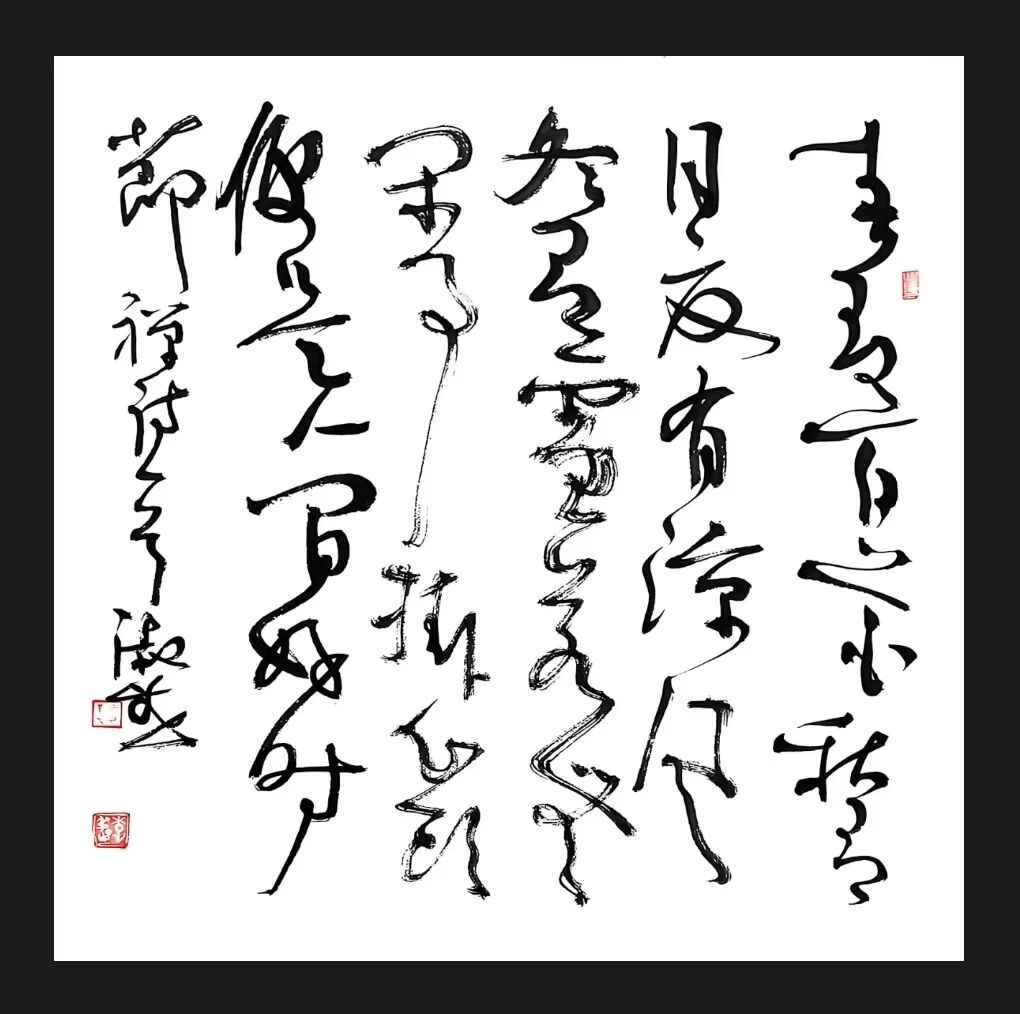 春有百花秋有
月夏有凉风
冬有雪若无
闲事掛心头
便是人间好时
節 禅诗一首